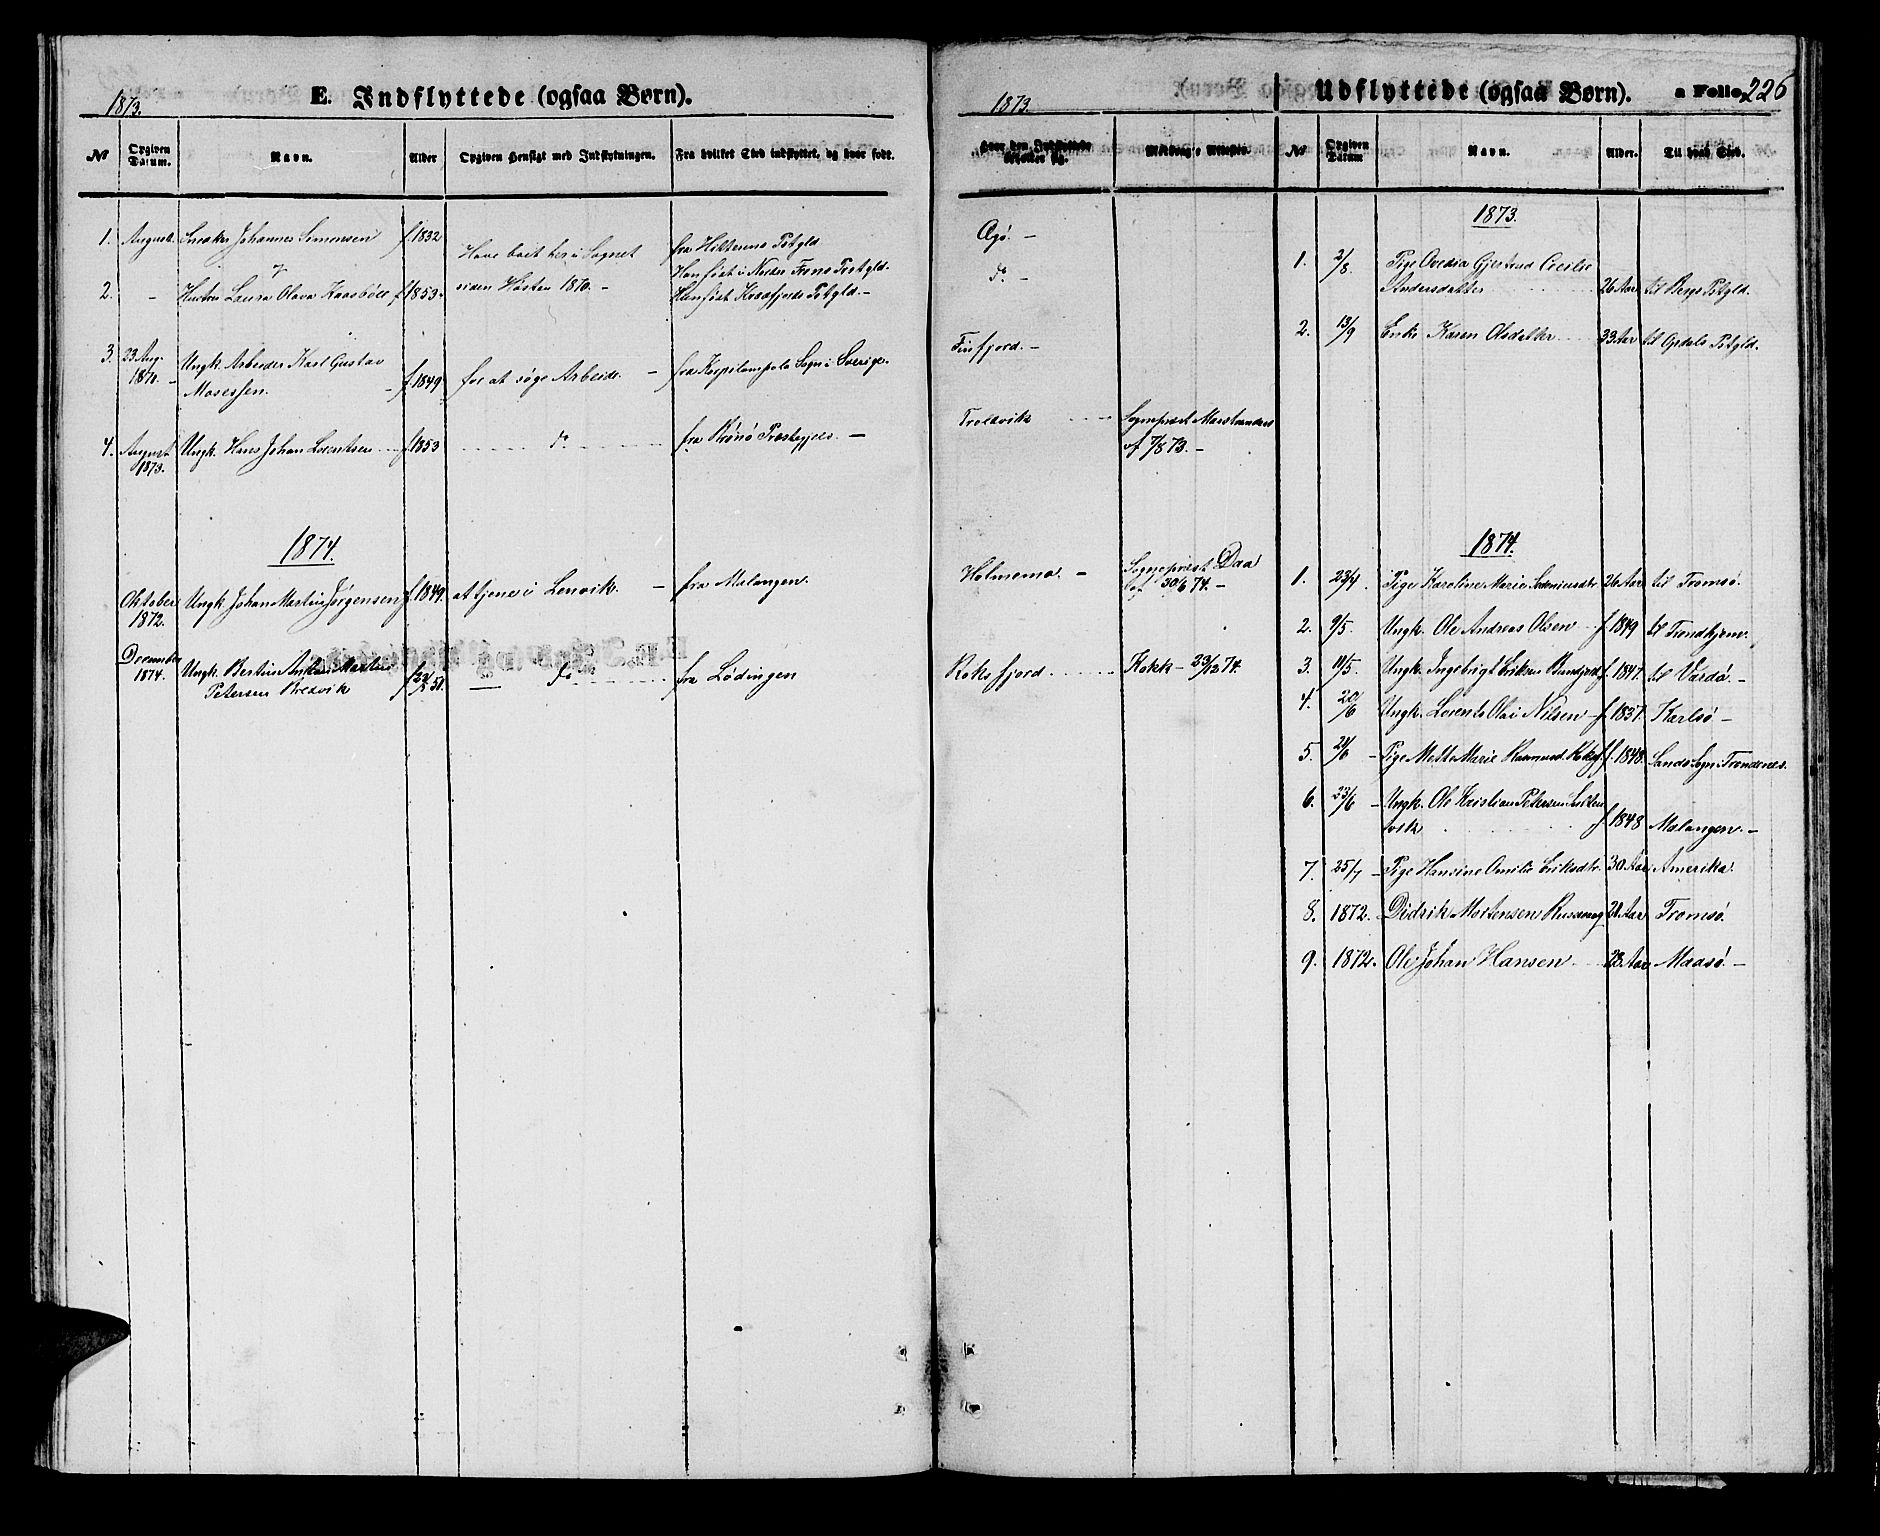 1873.
E. Indflyttede (ogsaa Børn).
No
Opgiven Datum.
Navn.
Alder
Opgiven Hensigt med Indflytningen.
Fra hvilket Sted indflyttet, og hvor født.
1. August. Snedker Johannes Simonsen f. 1832
Have boet her i Sognet
siden Høsten 1870. –
fra Hitterens Pstgld.
Han født i Nordre Frons Pstgld.
2. – Hustru Laura Olava Kaasbøll f. 1853.
Hun født Pstgld. –
3. 23 Aug. 1870. – Ungk. Arbeider Karl Gustav
Mosessen. – f. 1849 for at søge Arbeide. – fra Sogn i Sverige.
4. August 1873. Ungk. Hans Johan Lorentsen f. 1853 do fra Prestegjeld. –
1874.
Oktober 1872. Ungk. Johan Martin Jørgensen f. 1849. at tjene i Lenvik. – fra Malangen.
December 1874. Ungk. Bertinus Martin
Petersen – do fra Lødingen
1873.
Udflyttede (ogsaa Børn).
a Folio 226
hvor den Indflyttede
Meldings Attester.
No
Opgiven Datum
Navn.
Alder.
Til hvad Sted.
–
do –
Finfjord. –
Trolvik Sognepræst
af 7/8 73. –
Holmemo. – Sognepræst Daa
af 30/6 74. –
Roksfjord. Kokk – 74.
1873.
1. 2/8 Pige Ovedia Gjertrud Cecilie
Andersdatter 26 Aar til Bergs Pstgld.
2. 13/9 Enke Karen Olsdatter 33 Aar til Opdals Pstgld.
1874.
1. 23/4. Pige Karoline Marie 26 Aar til Tromsø.
2. 9/5. Ungk. Ole Andreas Olsen f. 1849 til Trondhjem.
3. 11/5. Ungk. Ingebrigt Eriksen f. 1847. til Vardø. –
4. 20/6 Ungk. Lorents Olai Nilsen – f. 1837. Karlsø –
5. – Pige Mette Marie f. 1848. Sands Sogn i Trondenes.
6. 23/6 – Ungk. Ole Kristian Petersen
f. 1848 Malangen. –
7. 25/7 – Pige Hansine Emilie Eriksdtr. 30 Aar Amerika.
8. 1872. Didrik Mortensen Aar Tromsø.
9. 1872. Ole Johan Hansen 28 Aar Maasø. –